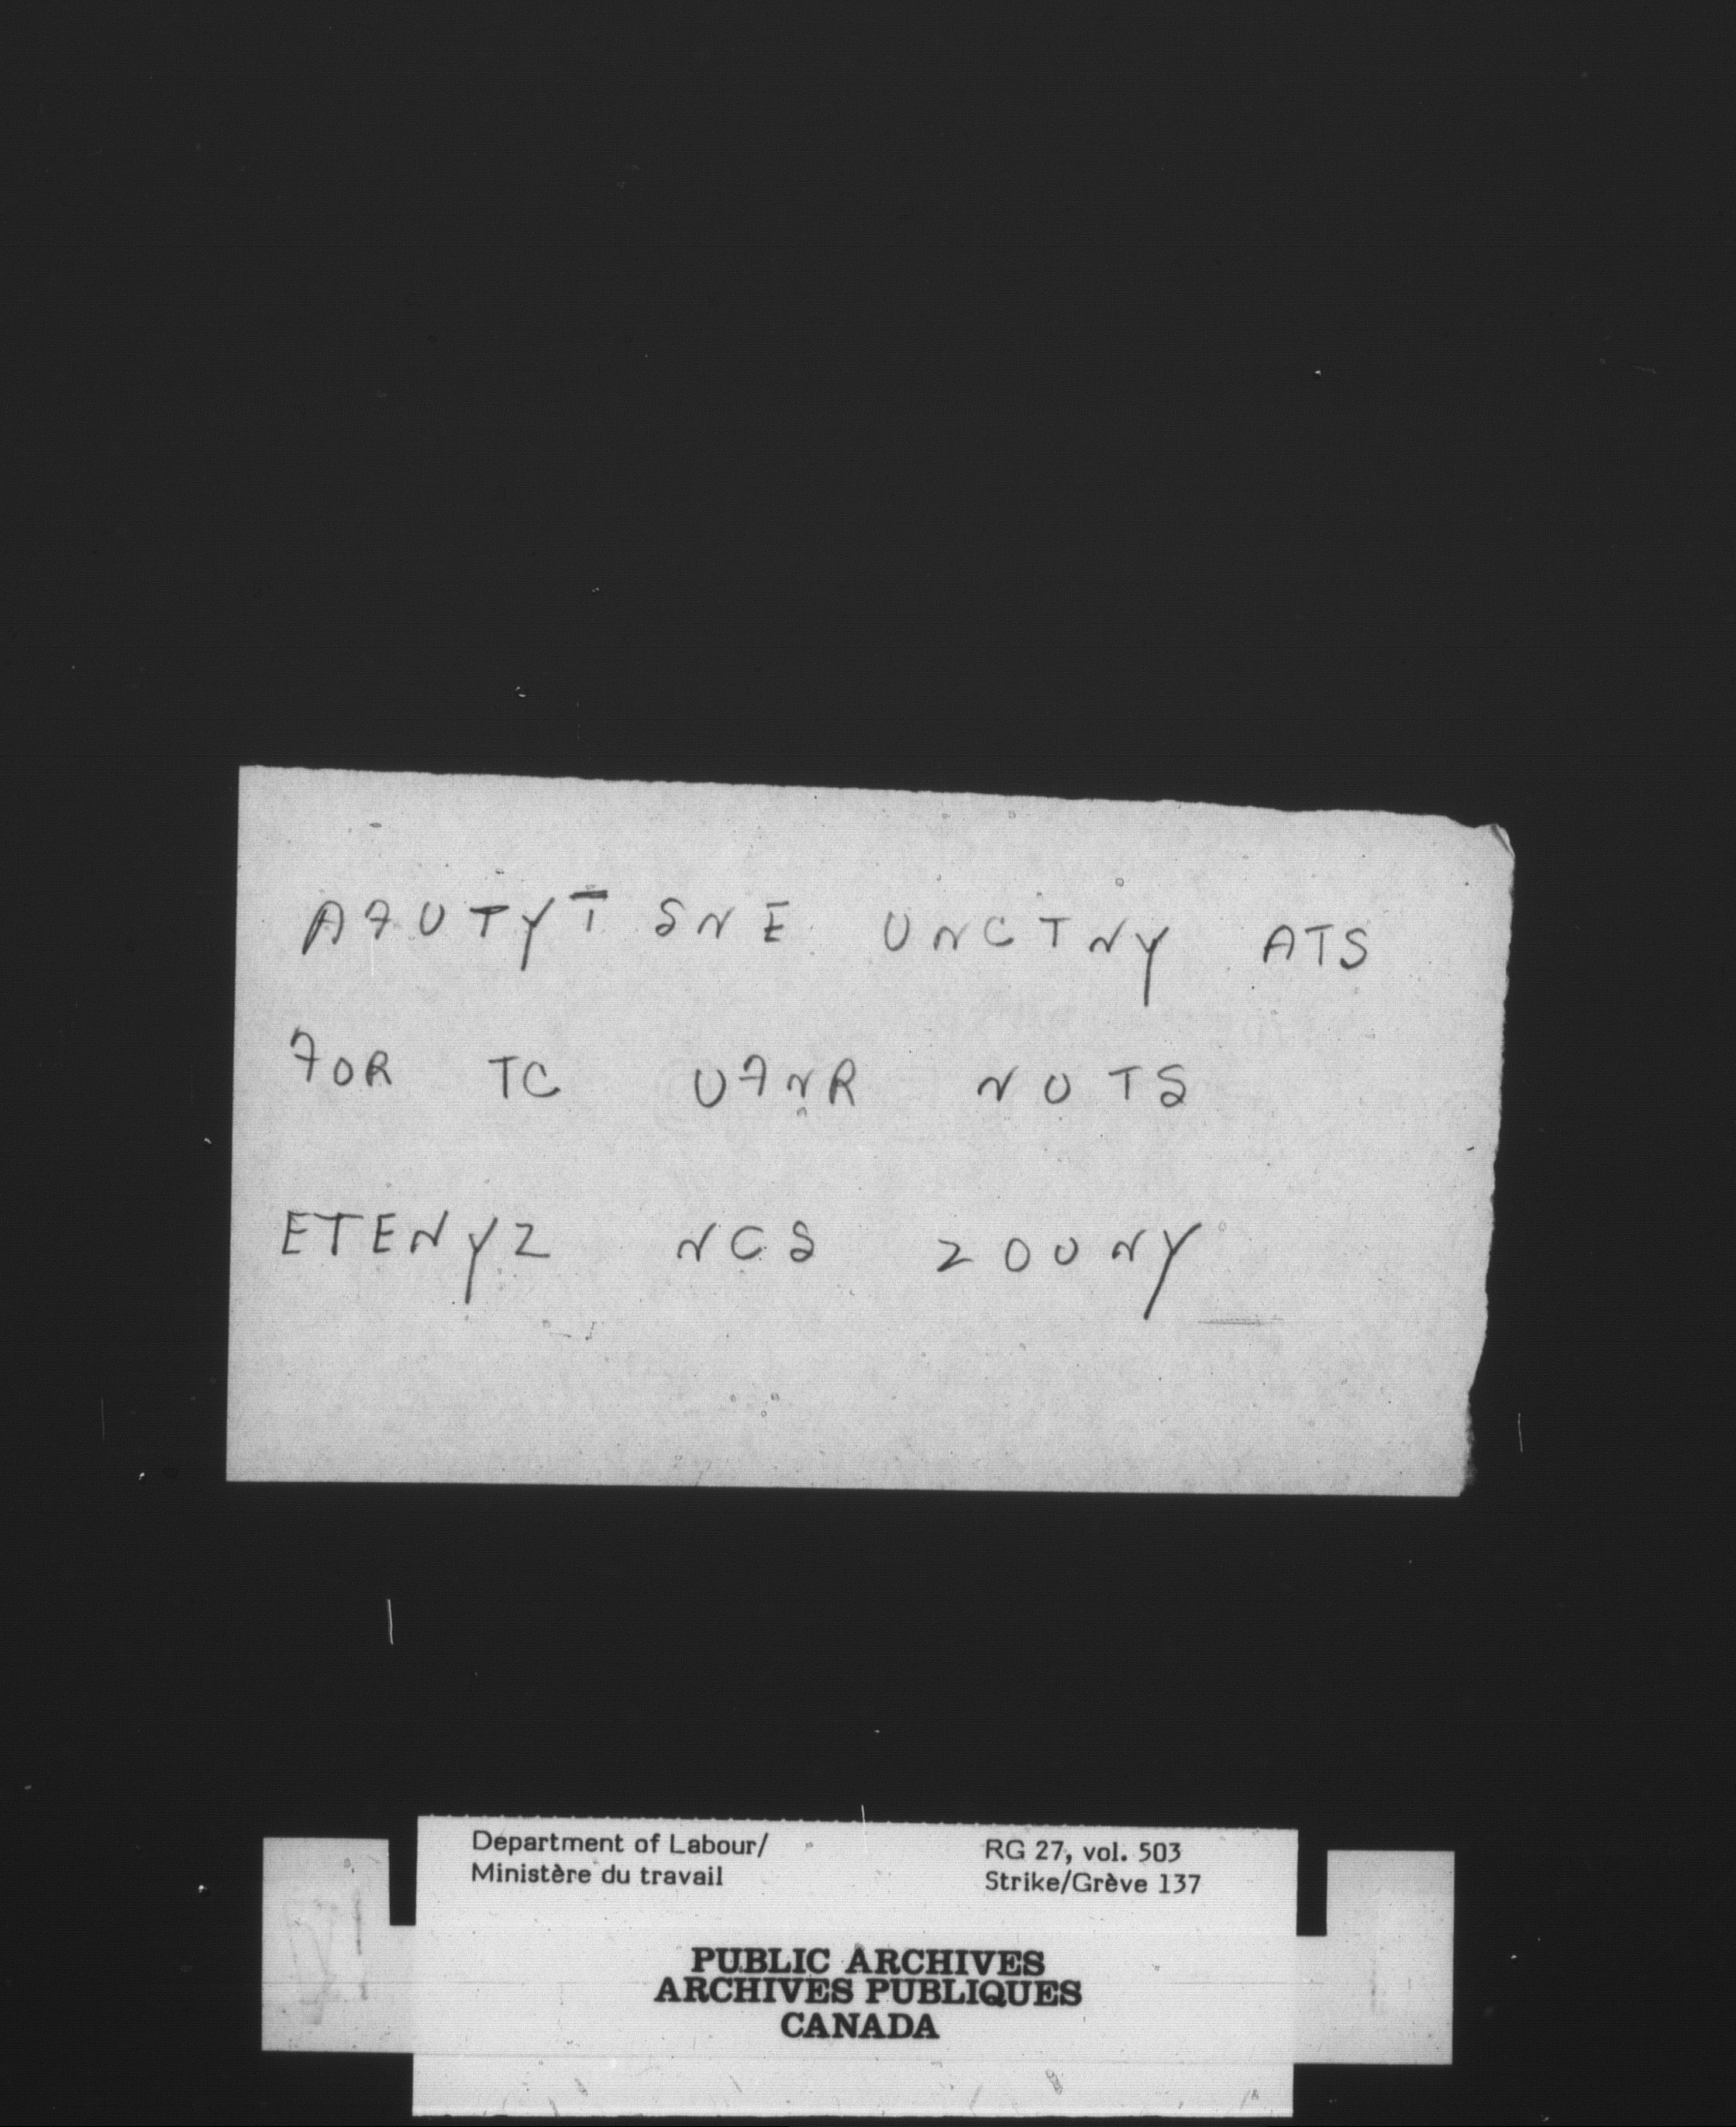 A7UTYT SNE UNCTNY ATS
7OR TC U7NR NUTS
ETENYZ NCS ZOUNY
Department of Labour/
Ministère du travail
RG 27, vol. 503
Strike/Grève 137
PUBLIC ARCHIVES
ARCHIVES PUBLIQUES
CANADA